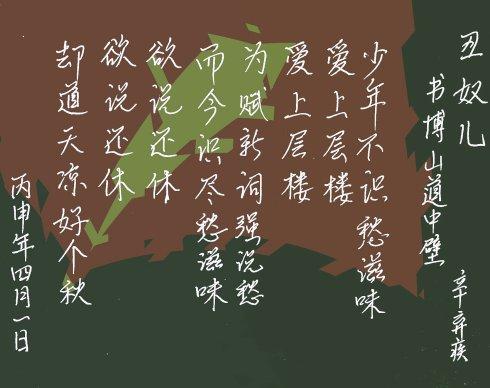 丑奴儿
书博山道中壁
辛弃疾
少年不识愁滋味
爱上层楼
爱上层楼
为赋新词强说愁
而今识尽愁滋味
欲说还休
欲说还休
却道天凉好个秋
丙申年四月一日